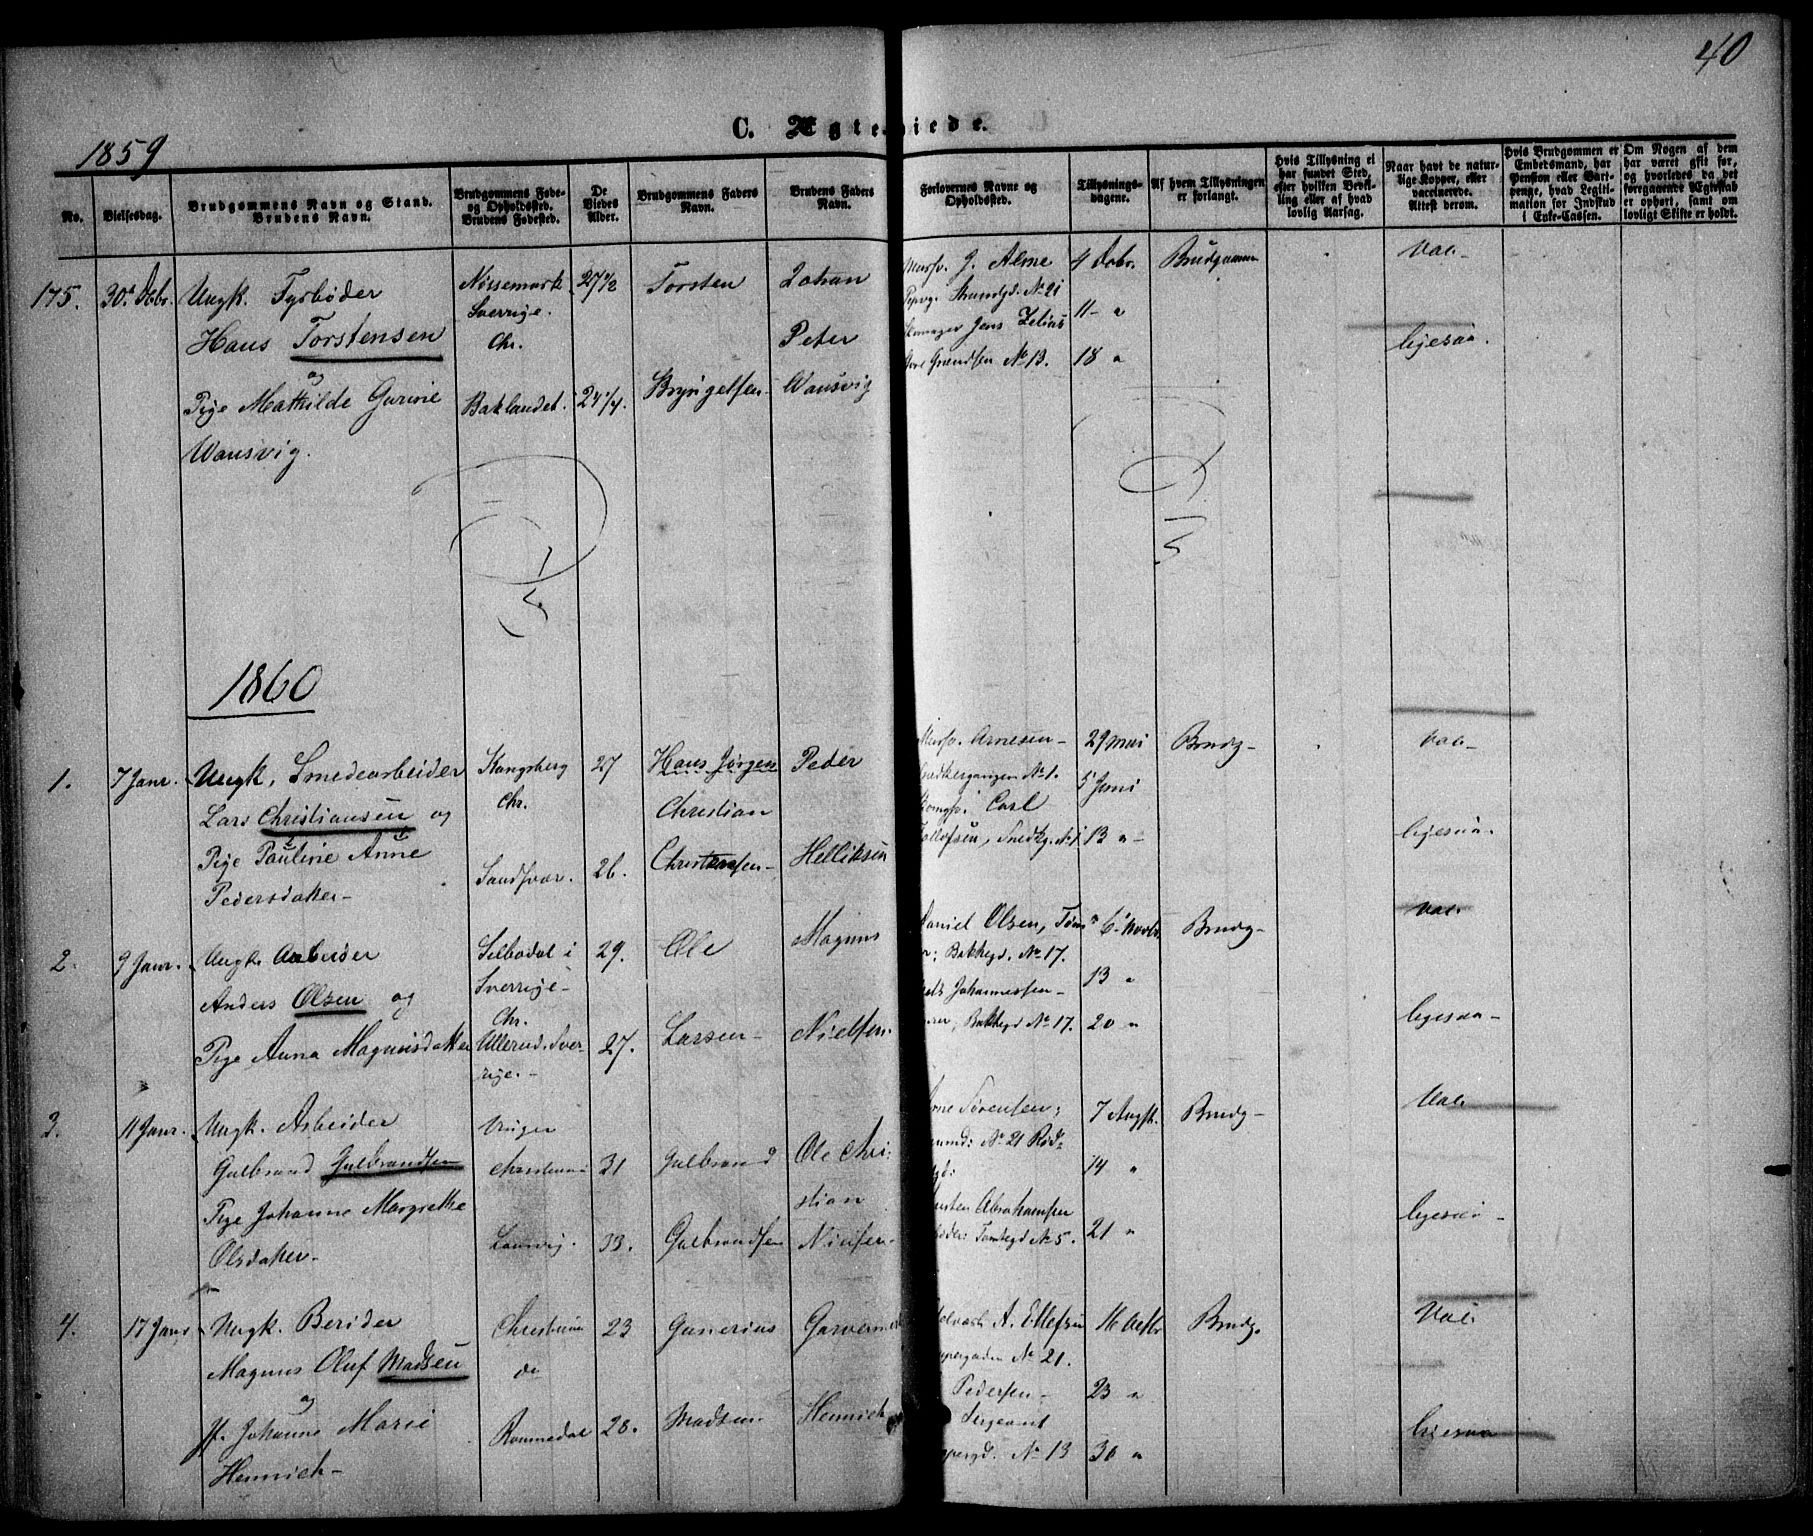 40
1859
C. Ægteviede.
No.
Vielsesdag.
Brudgommens Navn og Stand.
Brudens Navn.
Brudgommens Føde-
og Opholdssted.
Brudens Fødested.
De
Viedes
Alder.
Brudgommens Faders
Navn.
Brudens Faders
Navn.
Forlovernes Navne og
Opholdssted.
Tillysnings-
dagene.
Af hvem Tillysningen
er forlangt.
Hvis Tillysning ei
har fundet Sted,
efter hvilken Bevil-
ling eller af hvad
lovlig Aarsag.
Naar havt de natur-
lige Kopper, eller
vaccinerede.
Attest derom.
Hvis Brudgommen er
Embedsmand, har
Pension eller Vart-
penge, hvad Legiti-
mation for Indskud
i Enke-Cassen.
Om Nogen af dem
har været gift før,
og hvorledes da det
foregaaende Ægteskab
er ophørt, samt om
lovligt Skifte er holdt.
175. 30. Dbr. Ungk. Fyrbøder
Hans Torstensen
og
Pige Mathilde Gurine
Wansvig.
Nössemark
Sverrige.
Chr.
Baklandet.
27 1/2
24 1/4.
Torsten
Bryngelsen
Johan
Peter
Wansvig
J. Alme
Strandgd. No 21
Jens
No 13.
4 Dobr.
11 - "
18 "
Brudgommen
Vac.
ligesaa.
1860
1. 7 Janr. Ungk. Smedearbeider
Lars Christiansen og
Pige Pauline Anne
Pedersdatter
Kongsberg
Chr.
Sandsvær.
27
26.
Hans Jørgen
Christian
Christensen
Peder
Helliksen
Arnesen
No 1.
Carl
Tollofsen, Snedkg. No 1
29 mai
5 Juni
12 "
Brudg
Vac
ligesaa.
2. 9 Janr. Ungk. Arbeider
Anders Olsen og
Pige Anna Magnusdatter
Silbodal i
Sverrige
Chr.
Ullerud. Sver-
rige.
29.
27.
Ole
Larsen
Magnus
Nielsen
Daniel Olsen,
Bakkegd. No 17.
Johannessen
Bakkegd No 17.
6 Novbr.
13 "
20 "
Brudg
Vac.
ligesaa
3. 11 Janr. Ungk. Arbeider
Gulbrand Gulbrandsen
Pige Johanne Margrethe
Olsdatter
Vinger
Christiania
Laurvig.
31
33.
Gulbrand
Gulbrandsen
Ole Chri-
stian
Nielsen
Sørensen,
No 21
Abrahamsen
Tomtegd No 5.
7 Augst.
14 "
21 "
Brudg
Vac.
ligesaa
4. 17 Janr Ungk. Berider
Magnus Oluf Madsen
og
Jf. Johanne Marie
Hennich
Christiania
do
Romedal
23
28.
Gunerius
Madsen
Hennich
A. Ellefsen
No 21.
Pedersen
Sergeant
No 13
16 Octbr
23 "
30 "
Brudg.
Vac.
ligesaa